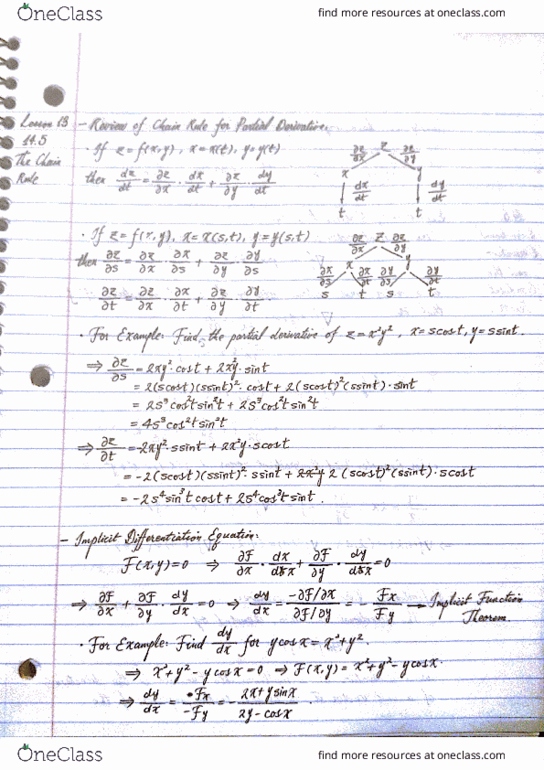 OneClass
find more resources at oneclass.com
Lesson 13
14.5
The Chain
Rule
- Review of Chain Rule for Partial Derivative.
· If z = f(x,y), x = x(t), y = y(t)
then dz/dt = ∂z/∂x · dx/dt + ∂z/∂y · dy/dt
∂z/∂x z ∂z/∂y
x y
dx/dt dy/dt
t t
· If z = f(x,y), x = x(s,t), y = y(s,t)
then ∂z/∂s = ∂z/∂x · ∂x/∂s + ∂z/∂y · ∂y/∂s
∂z/∂t = ∂z/∂x · ∂x/∂t + ∂z/∂y · ∂y/∂t
∂z/∂x z ∂z/∂y
x y
∂x/∂s ∂x/∂t ∂y/∂s ∂y/∂t
s t s t
· For Example: Find the partial derivative of z = x²y², x = scost, y = ssint.
⇒ ∂z/∂s = 2xy² · cost + 2x²y · sint
= 2(scost)(ssint)² · cost + 2(scost)²(ssint) · sint
= 2s³cos²tsin²t + 2s³cos²tsin²t
= 4s³cos²tsin²t
⇒ ∂z/∂t = -2xy² · ssint + 2x²y · scost
= -2(scost)(ssint)² · ssint + 2(scost)²(ssint) · scost
= -2s⁴sin³tcost + 2s⁴cos³tsint.
- Implicit Differentiation Equation:
F(x,y)=0 ⇒ ∂F/∂x · dx/dx + ∂F/∂y · dy/dx = 0
⇒ ∂F/∂x + ∂F/∂y · dy/dx = 0 ⇒ dy/dx = -∂F/∂x / ∂F/∂y = - Fx/Fy → Implicit Function
Theorem.
· For Example: Find dy/dx for ycosx = x²+y²
⇒ x²+y²-ycosx = 0 ⇒ F(x,y) = x²+y²-ycosx.
⇒ dy/dx = Fx/-Fy = - 2x+ysinx / 2y-cosx.
OneClass
find more resources at oneclass.com